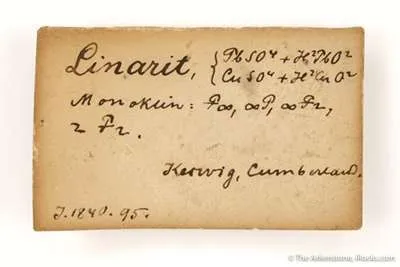 Linarit, { PbSO⁴ + H²PbO²
{ CuSO⁴ + H²CuO²
Monoklin: P∞, ∞P, ∞P2,
2 P2.
Keswig, Cumberland.
J. 1840. 95.
© The Arkenstone, iRocks.com